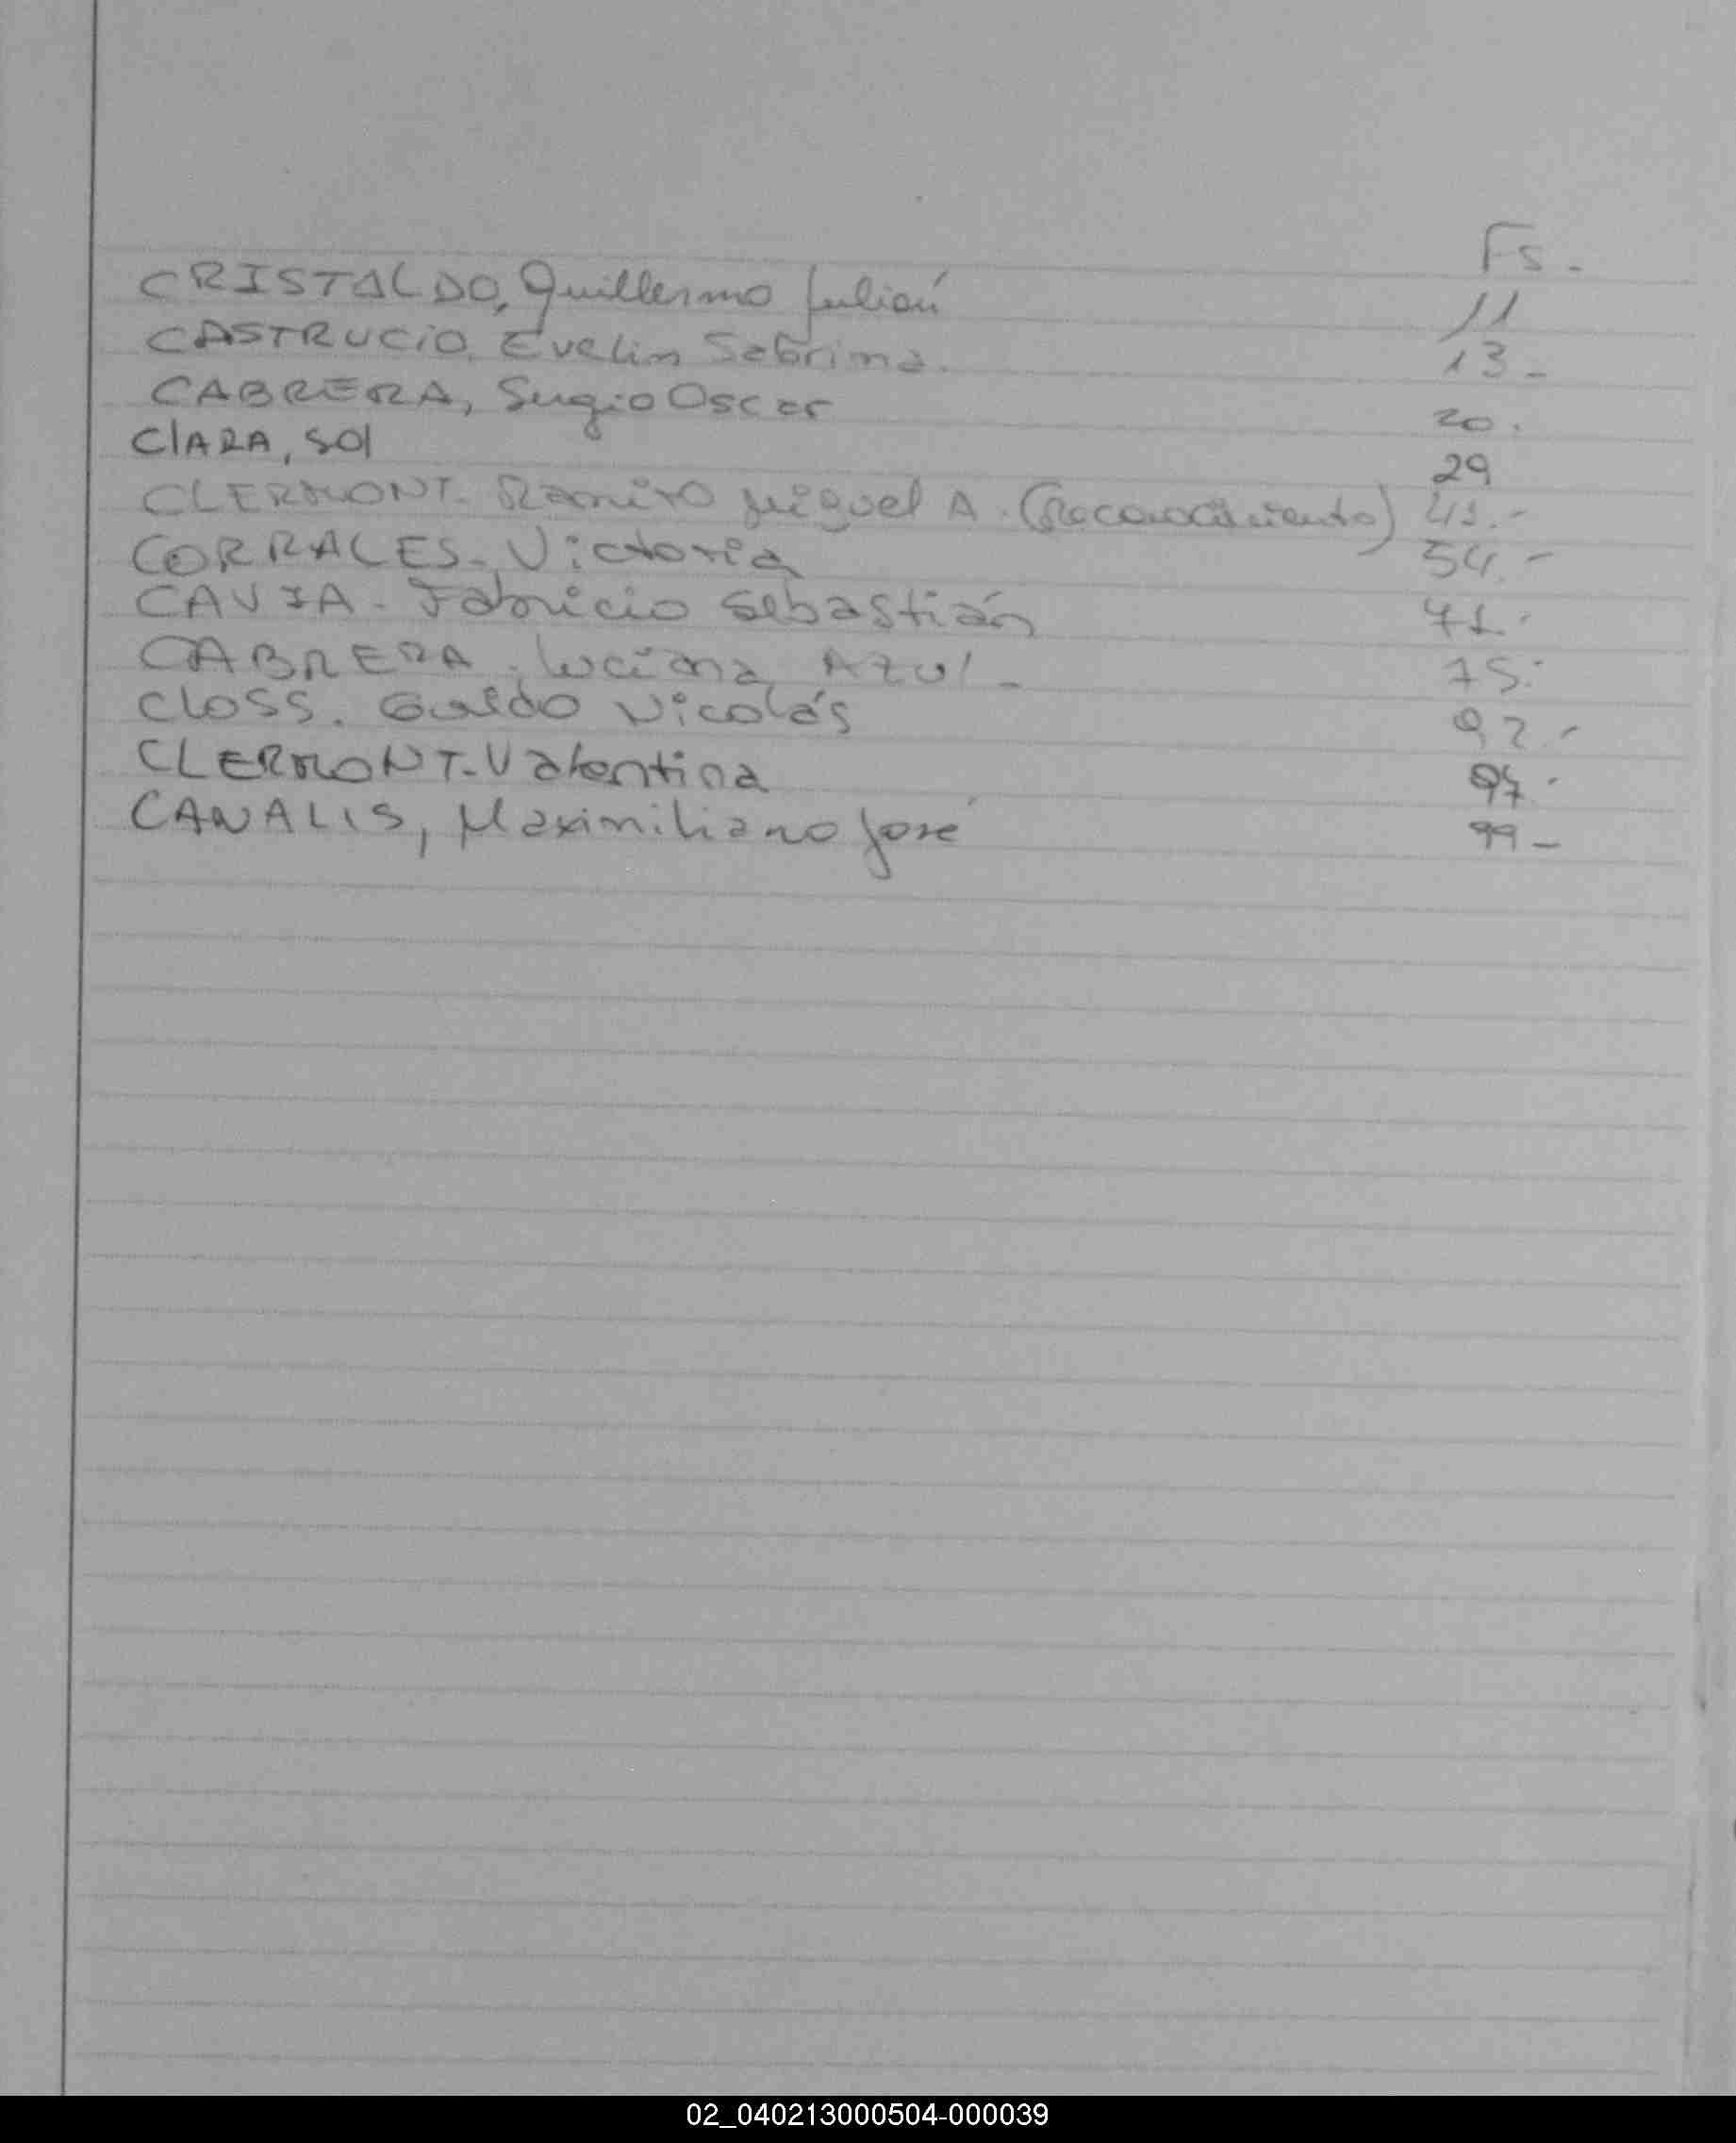 Fs.-
CRISTALDO, Guillermo Julián 11
CASTRUCIO, Evelin Sabrina. 13-
CABRERA, Sergio Oscar 20.
ClARA, SOl 29
CLERMONT. Ramiro Miguel A. (Reconocimiento)
CORRALES- Victoria 54.-
CAVIA- Fabricio Sebastián 71.-
CABRERA. Luciana Azul- 75.-
CLOSS. Guido Nicolás 92.-
CLERMONT-Valentina 94.-
CANALIS, Maximiliano José 99-
02_040213000504-000039